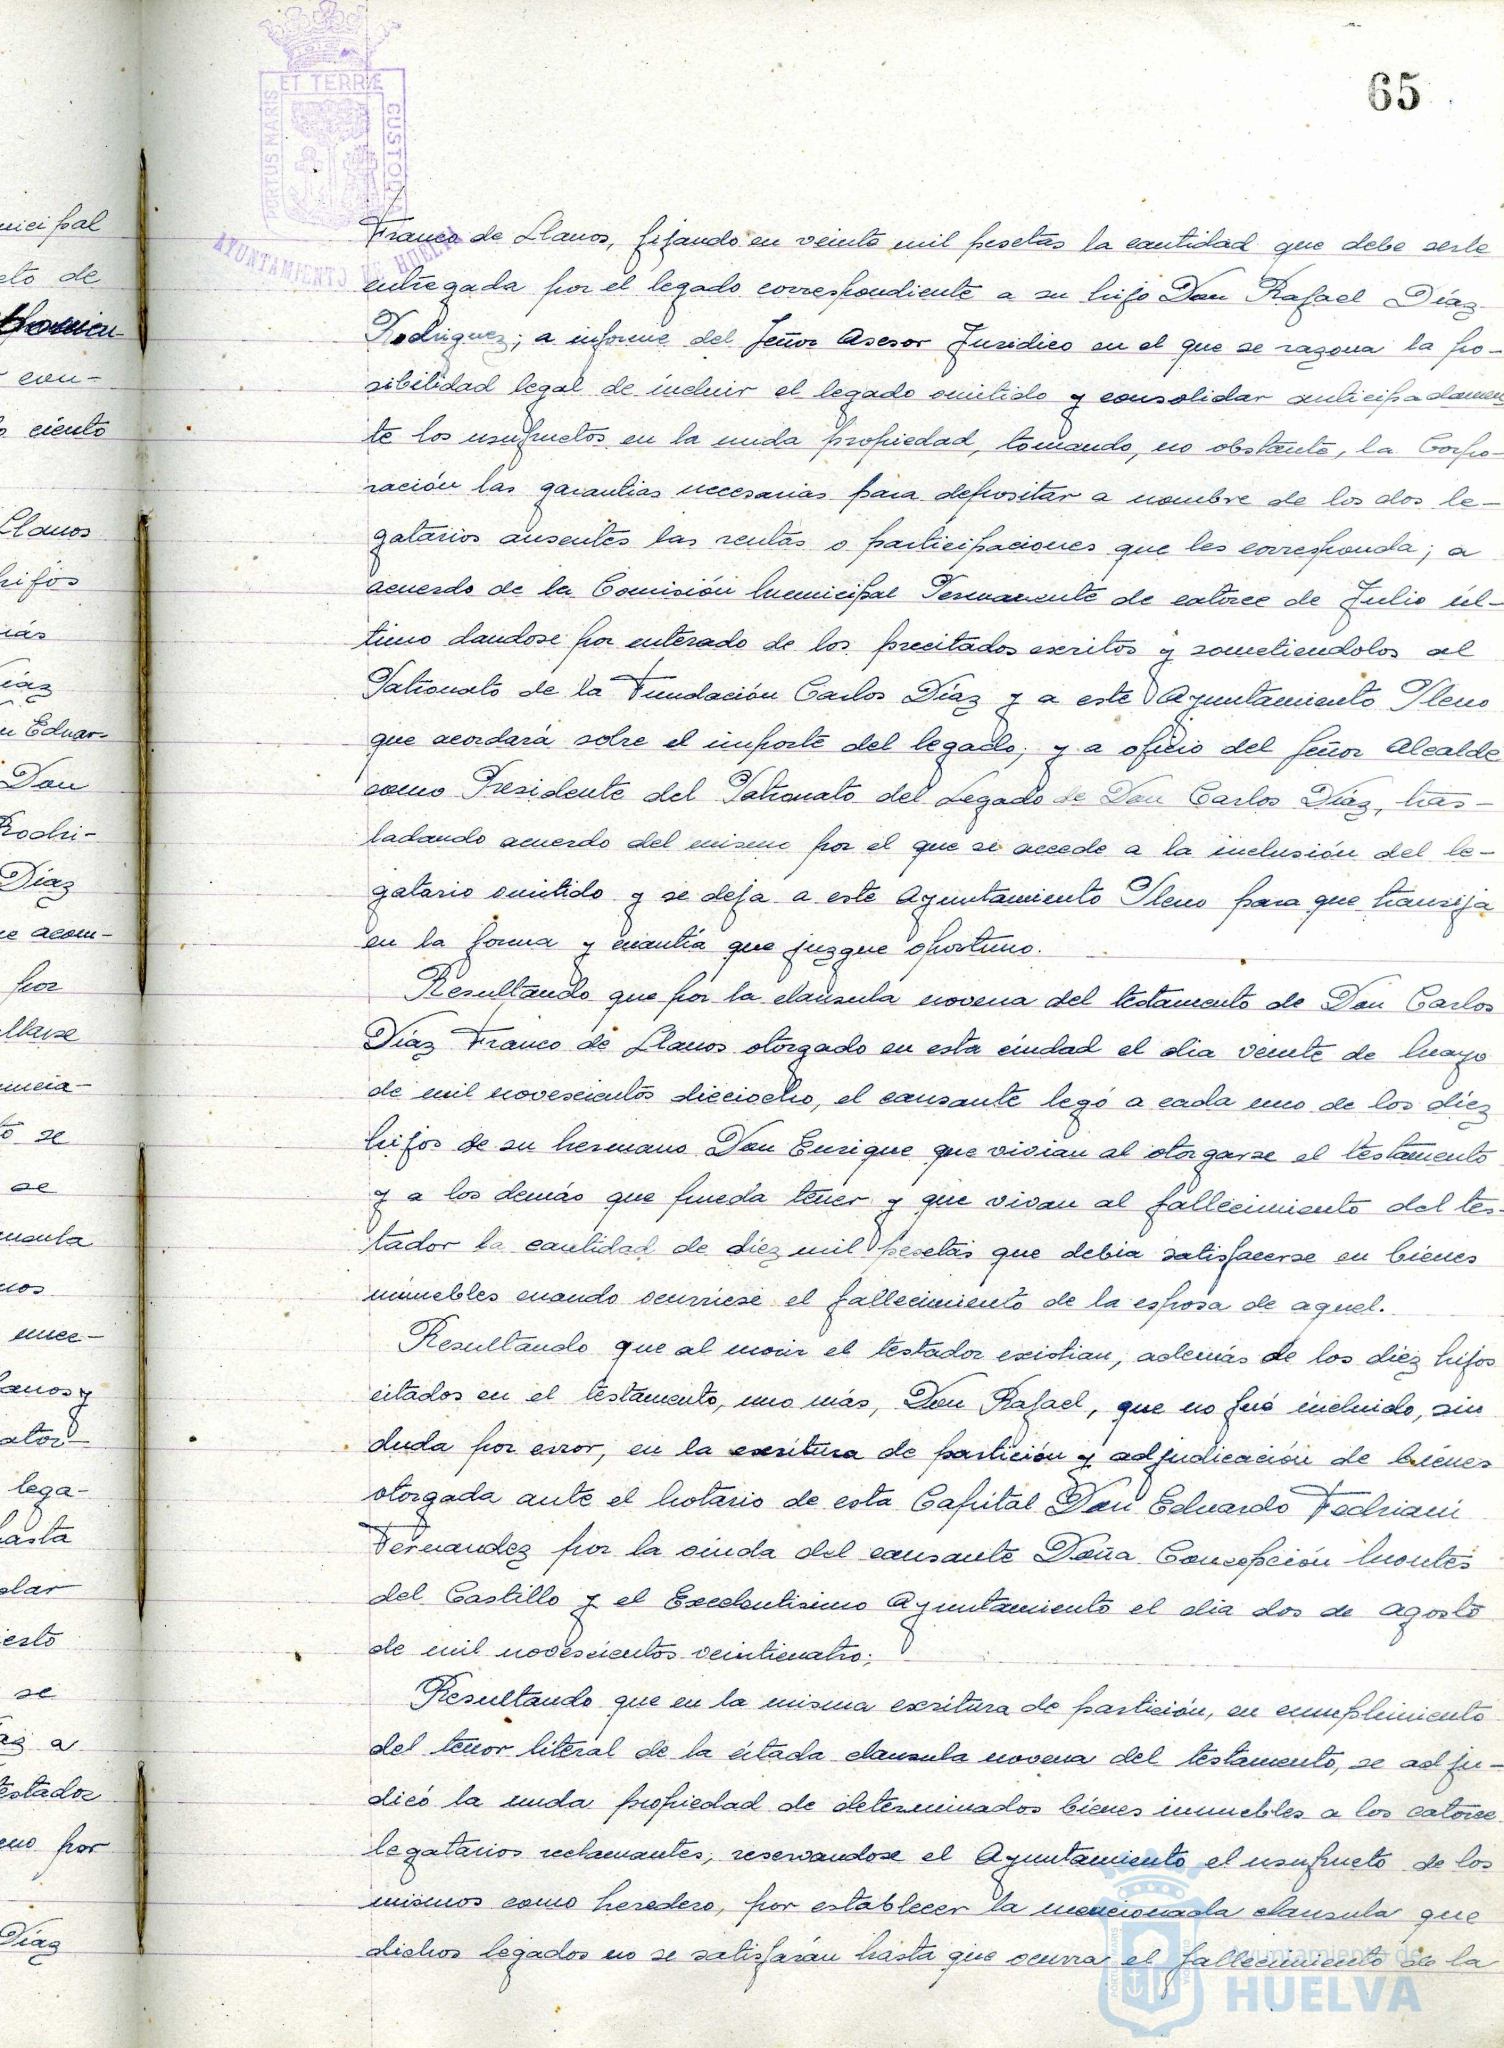 65
ET TERRÆ
PORTUS MARIS
CUSTODIA
AYUNTAMIENTO DE HUELVA
Franco de Llanos, fijando en veinte mil pesetas la cantidad que debe serle
entregada por el legado correspondiente a su hijo Don Rafael Díaz
Rodriguez; a informe del Señor Asesor Jurídico en el que se razona la po-
sibilidad legal de incluir el legado omitido y consolidar anticipadamen
te los usufructos en la nuda propiedad, tomando, no obstante, la Corpo-
ración las garantias necesarias para depositar a nombre de los dos le-
gatarios ausentes las rentas o participaciones que les corresponda; a
acuerdo de la Comisión Municipal Permanente de catorce de Julio úl-
timo dandose por enterado de los precitados escritos y sometiendolos al
Patronato de la Fundación Carlos Díaz y a este Ayuntamiento Pleno
que acordará sobre el importe del legado; y a oficio del Señor Alcalde
como Presidente del Patronato del Legado de Don Carlos Díaz, tras-
ladando acuerdo del mismo por el que se accede a la inclusión del le-
gatario omitido y se deja a este Ayuntamiento Pleno para que transija
en la forma y cuantía que juzgue oportuno.
Resultando que por la clausula novena del testamento de Don Carlos
Díaz Franco de Llanos otorgado en esta ciudad el dia veinte de Mayo
de mil novescientos dieciocho, el causante legó a cada uno de los diez
hijos de su hermano Don Enrique que vivian al otorgarse el testamento
y a los demás que pueda tener y que vivan al fallecimiento del tes-
tador la cantidad de diez mil pesetas que debia satisfacerse en bienes
inmuebles cuando ocurriese el fallecimiento de la esposa de aquel.
Resultando que al morir el testador existian, además de los diez hijos
citados en el testamento, uno más, Don Rafael, que no fué incluido, sin
duda por error, en la escritura de partición y adjudicación de bienes
otorgada ante el Notario de esta Capital Don Eduardo Fedriani
Fernandez por la viuda del causante Doña Concepción Montes
del Castillo y el Excelentisimo Ayuntamiento el dia dos de agosto
de mil novescientos veinticuatro;
Resultando que en la misma escritura de partición, en cumplimiento
del tenor literal de la citada clausula novena del testamento, se adju-
dicó la nuda propiedad de determinados bienes inmuebles a los catorce
legatarios reclamantes, reservandose el Ayuntamiento el usufructo de los
mismos como heredero, por establecer la mencionada clausula que
dichos legados no se satisfarán hasta que ocurra el fallecimiento de la
Ayuntamiento de
HUELVA